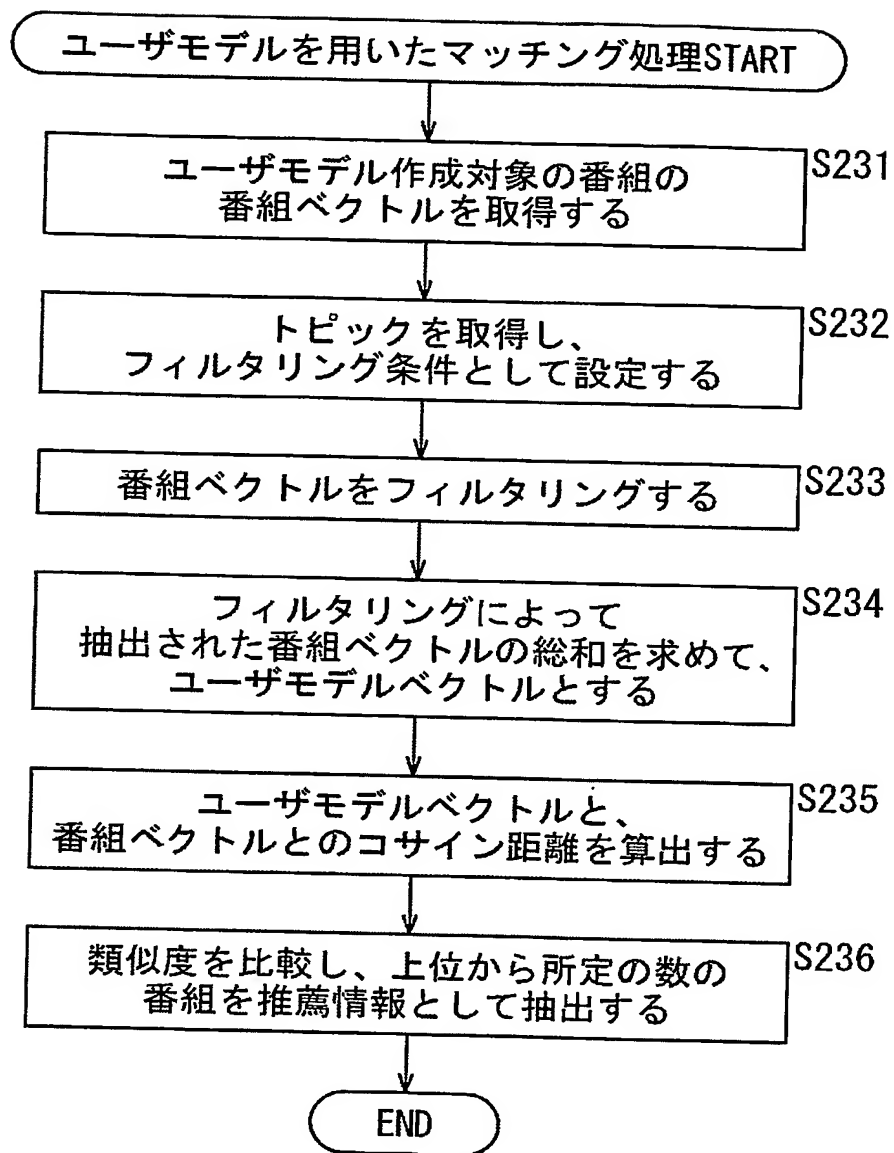 ユーザモデルを用いたマッチング処理START
S231
ユーザモデル作成対象の番組の
番組ベクトルを取得する
S232
トピックを取得し、
フィルタリング条件として設定する
S233
番組ベクトルをフィルタリングする
S234
フィルタリングによって
抽出された番組ベクトルの総和を求めて、
ユーザモデルベクトルとする
S235
ユーザモデルベクトルと、
番組ベクトルとのコサイン距離を算出する
S236
類似度を比較し、上位から所定の数の
番組を推薦情報として抽出する
END